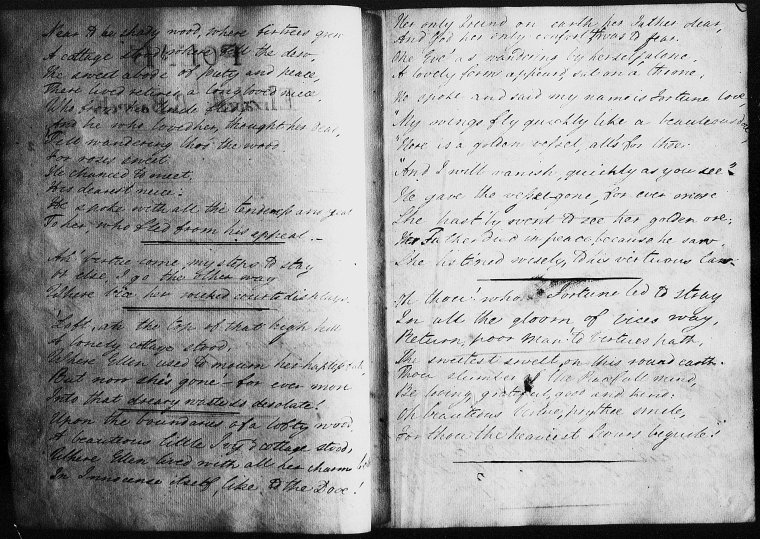 Near to be shady wood, where virtues grew
A cottage stood before the dew,
The sweet abode of piety and peace,
There lived retired a long loved niece.
Who from her uncle
And he who loved her, thought her dear,
Still wandering thro' the wood
For roses sweet
He chanced to meet,
His dearest niece:
He spoke with all the tenderness and zeal
To her, who fled from his appeal.
Ah! virtue come, my steps to stay
Or else I go the other way
Where her wicked court displays.
Loft, at the top of that high hill
A lonely cottage stood,
Where Ellen used to mourn her hapless fate,
But now she's gone – for ever more
Into that dreary is desolate!
Upon the boundaries of a lofty wood,
A beauteous little Ivy'd cottage stood,
Where Ellen lived with all her charms
In Innocence itself, like to the Dove!
Her only friend on earth her Father dear,
And God her only comfort was to fear.
One Eve' as wandering by herself alone,
A lovely form appeared sat on a throne,
He spoke and said my name is Fortune love,
"My wings fly quickly like a beauteous dove,
"Here is a golden vessel, all's for thee
"And I will vanish, quickly as you see"
He gave the vessel—gone, for ever more
She hast'ly went to see her golden ore;
Her Father died in peace because he saw,
She listened wisely, to his virtuous law.
Ah thou! whom Fortune led to stray
In all the gloom of vices way,
Return, poor man to virtues path,
The sweetest smell on this round earth.
Thou slumber of the peacefull mind,
Be loving, grateful, good and kind:
Oh beauteous smile,
For thou the heaviest hours beguile!